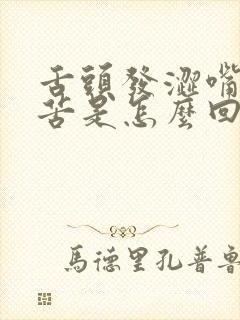 舌頭發澀嘴
苦是怎麼回
馬德里孔普魯